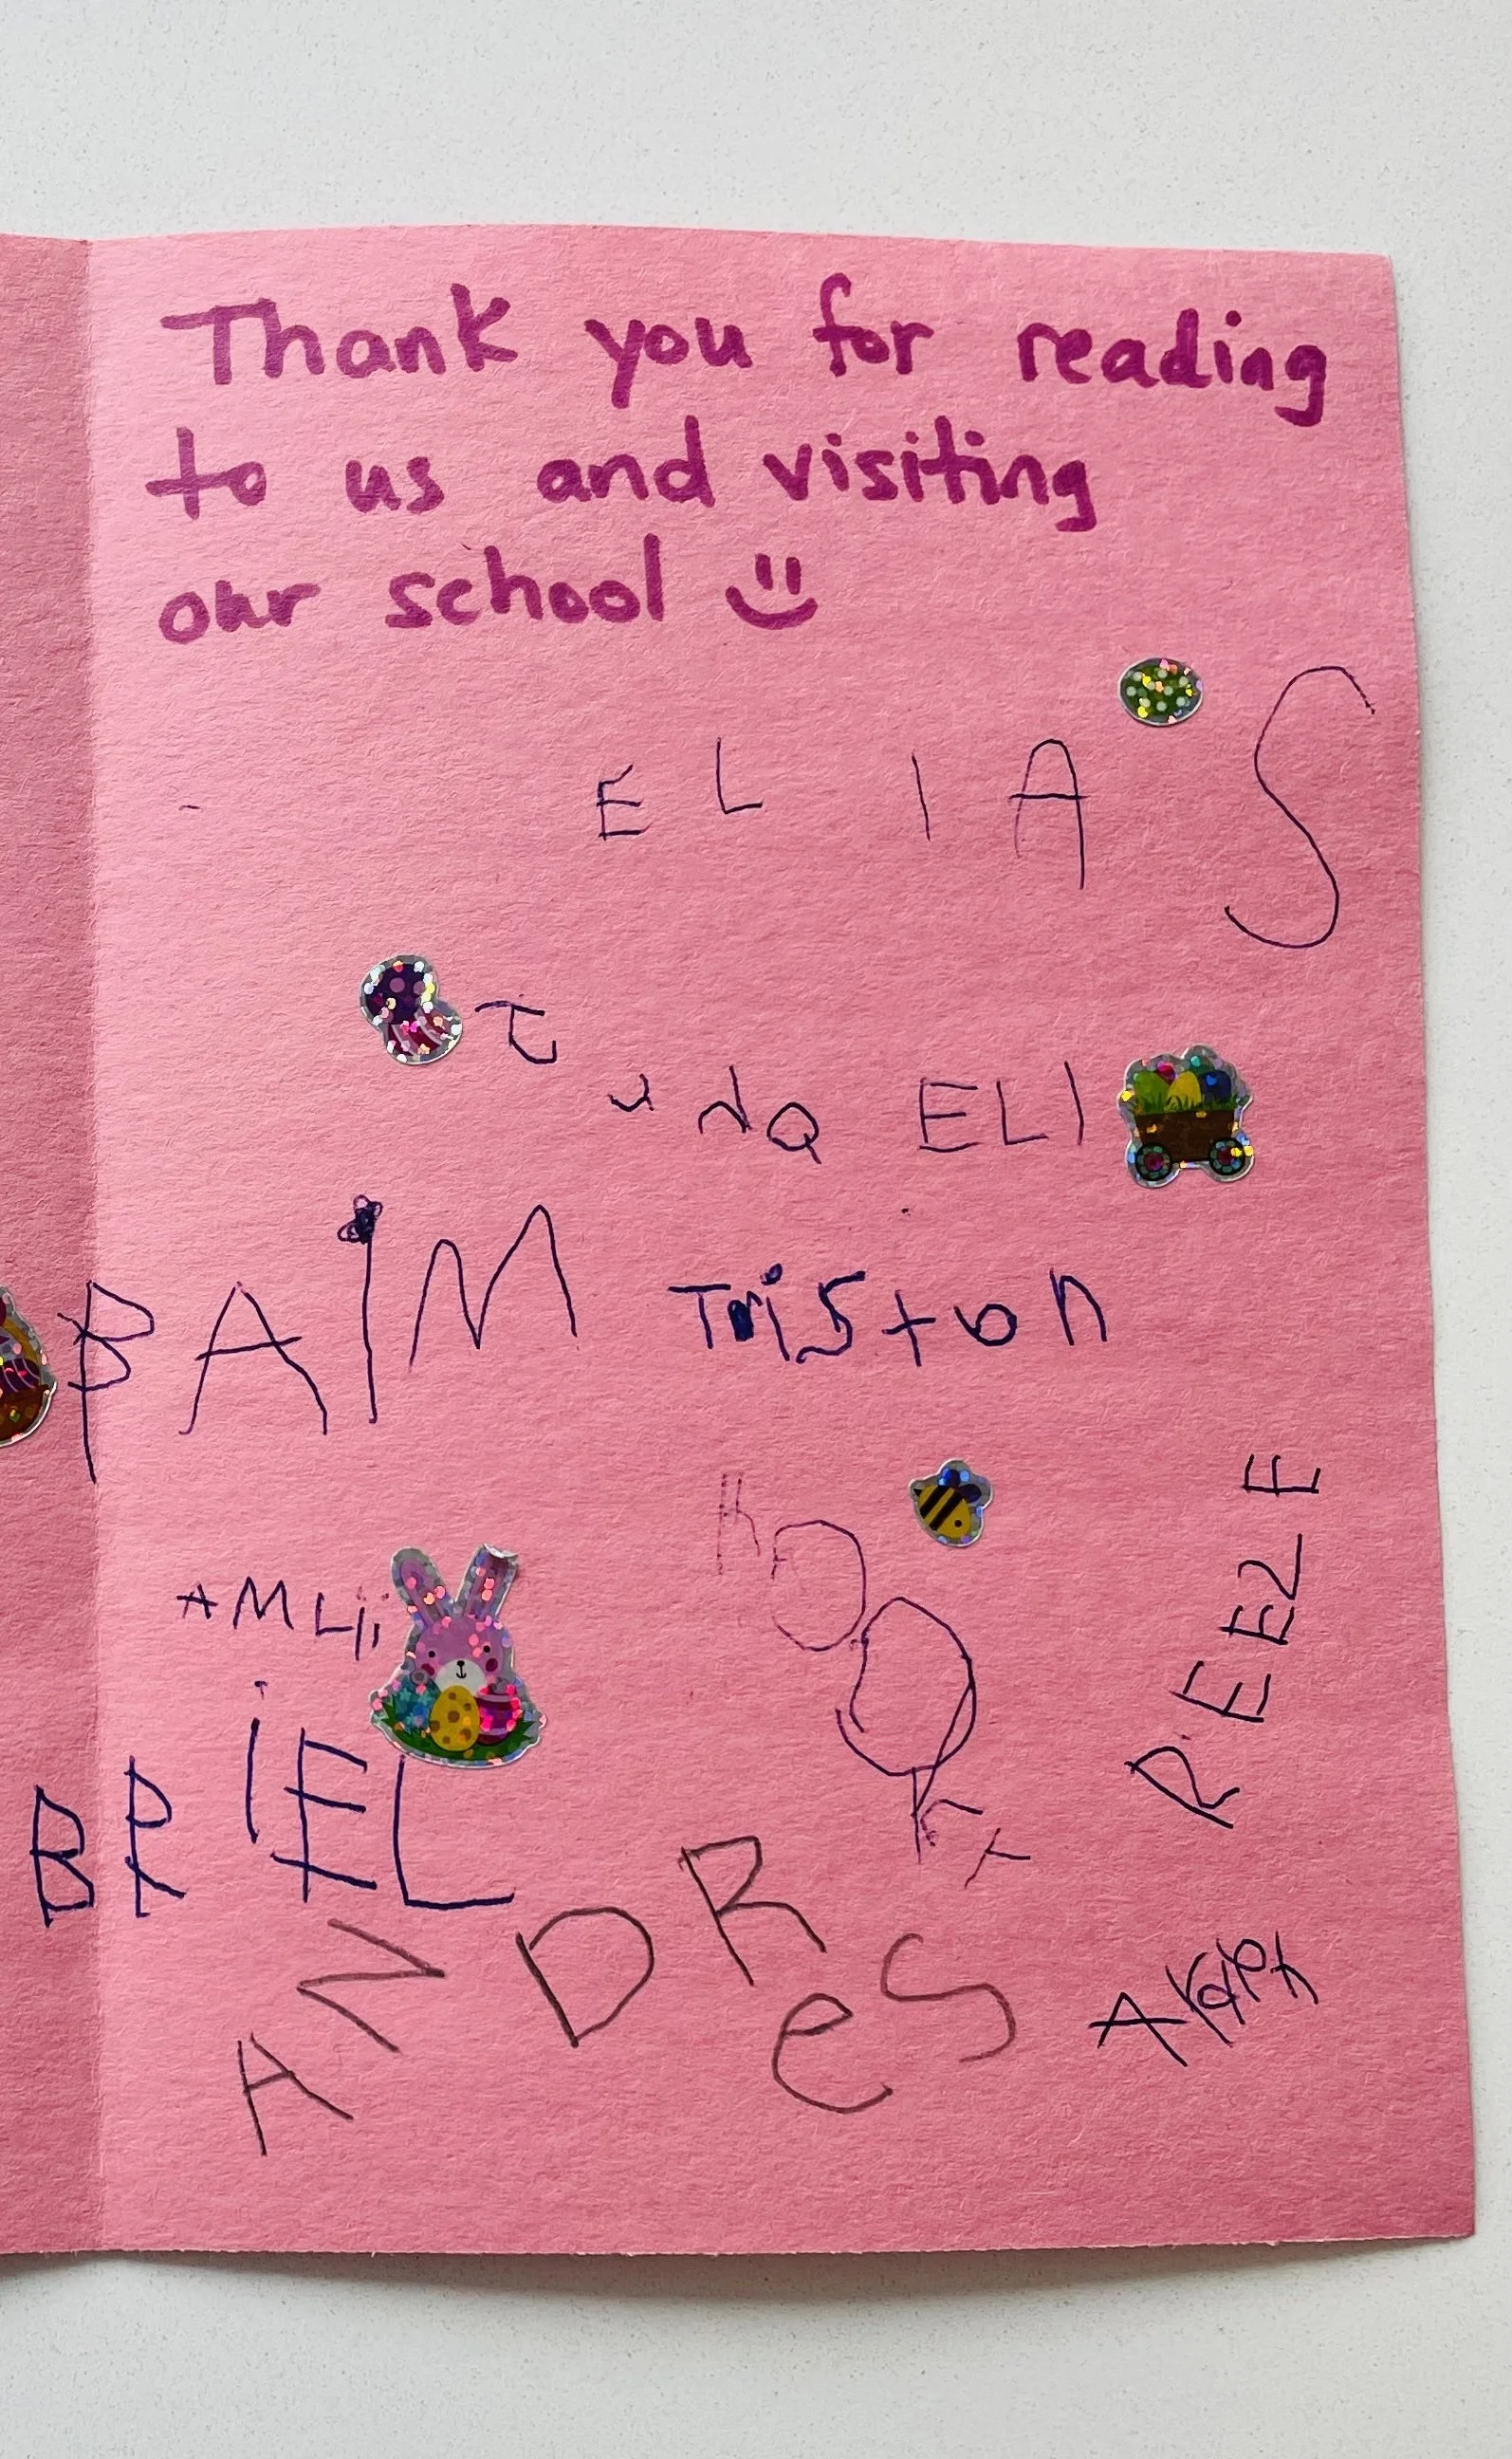 Thank you for reading
to us and visiting
our school
ELIAS
ELI
PAIM
Triston
AMLii
REEZE
BRIEL
ANDReS